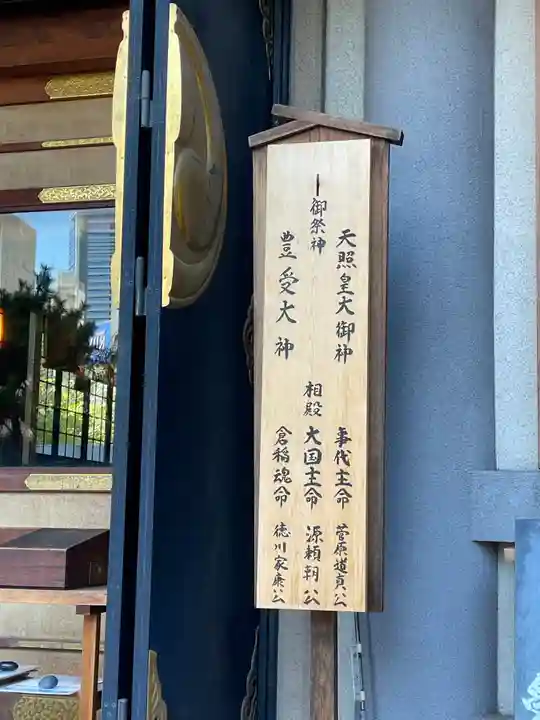 天照皇大御神
一御祭神
豊受大神
事代主命
相殿 大国主命
倉稲魂命
菅原道真公
源頼朝公
徳川家康公